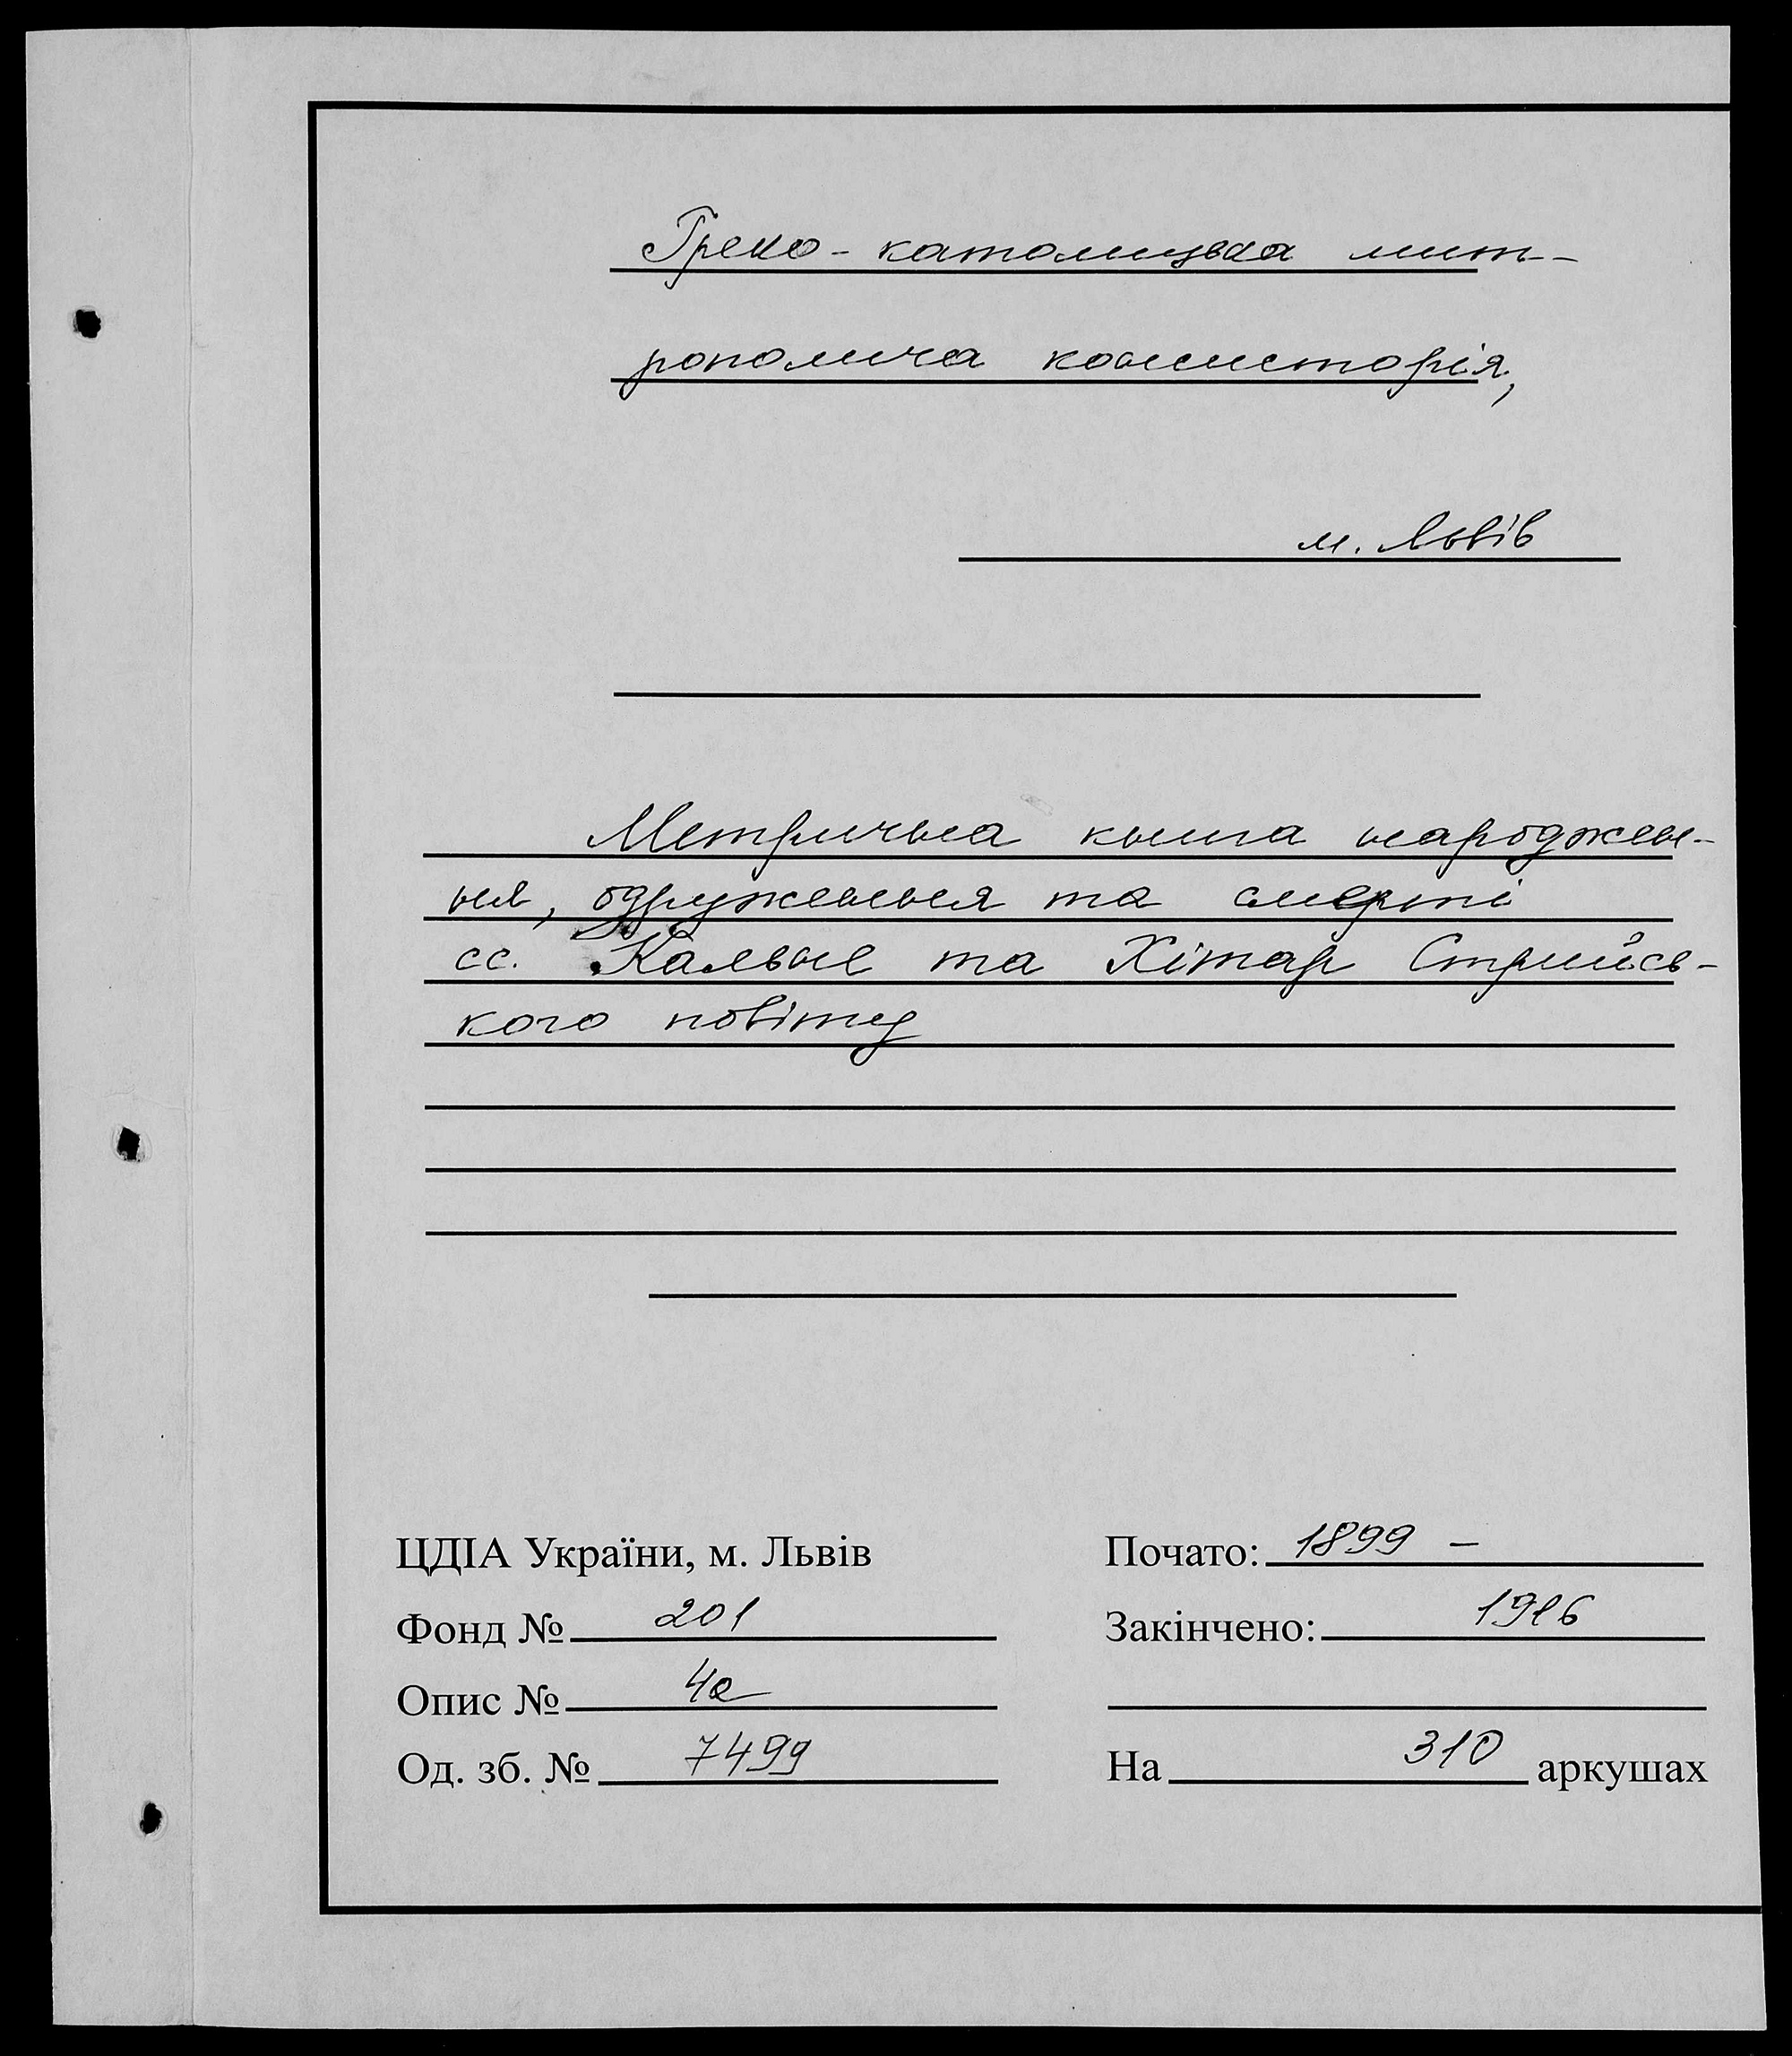 Греко-католицька мит-
рополича консисторія,
м. Львів
Метрична книга народжен-
ня, одруження та смерті
сс. Кальне та Хітар Стрийсь-
кого повіту
ЦДІА України, м. Львів
Фонд № 201
Опис № 4а
Од. зб. № 7499
Почато: 1899 –
Закінчено: 1916
На 310 аркушах